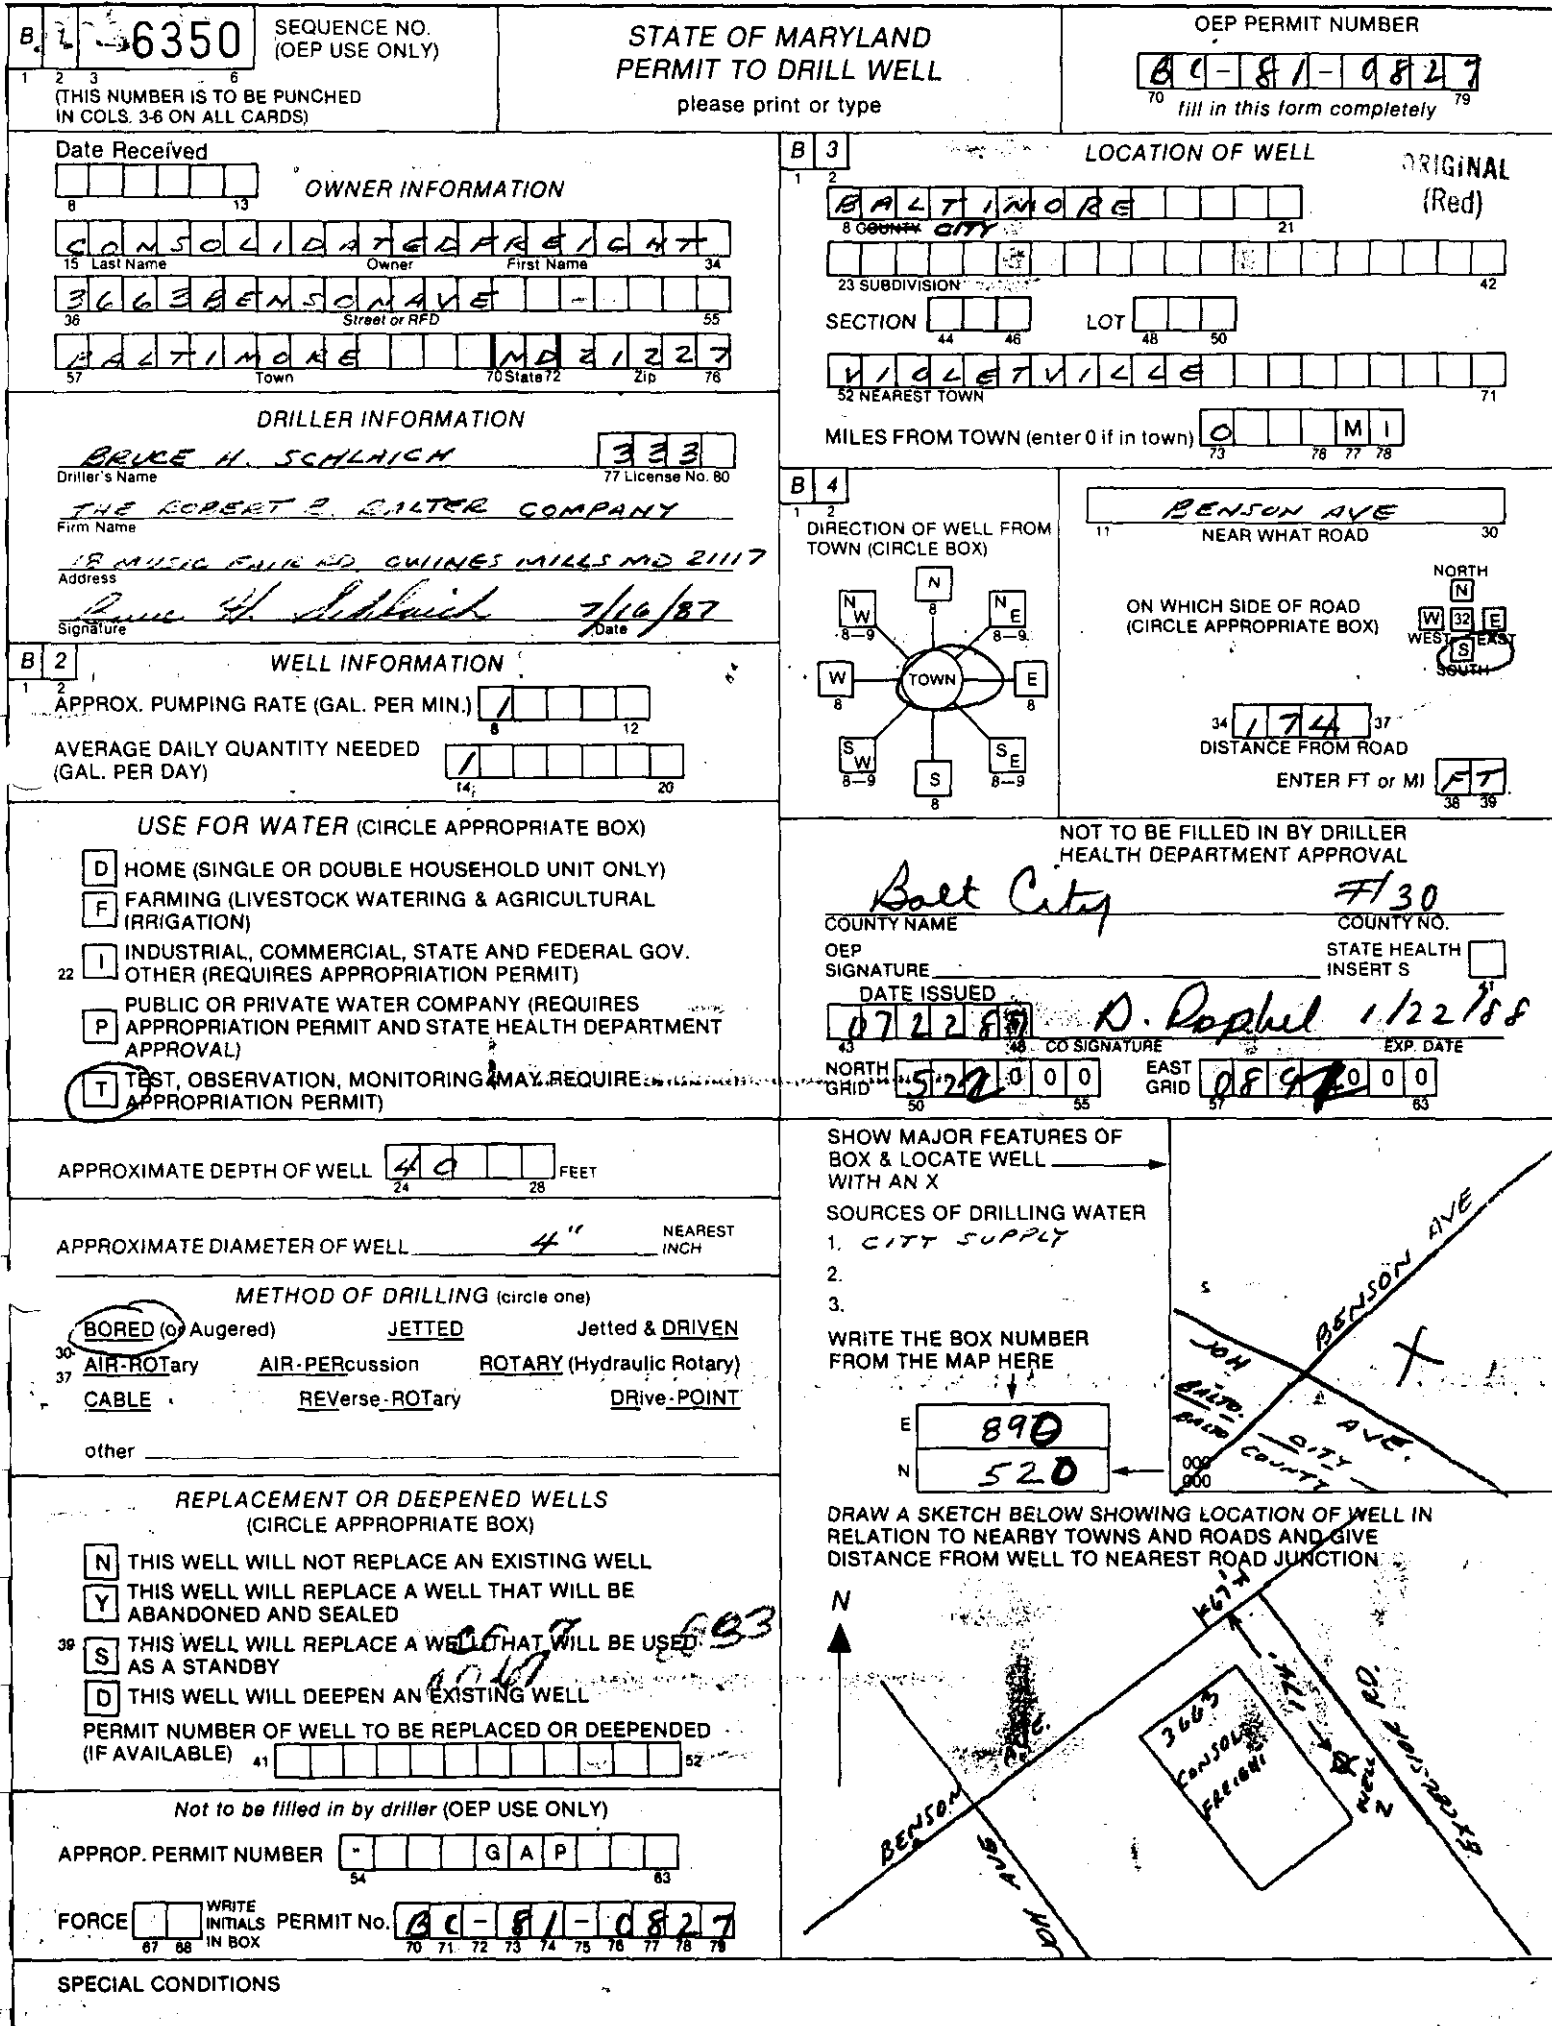 B 1 6350
1 2 3 6
SEQUENCE NO.
(OEP USE ONLY)
(THIS NUMBER IS TO BE PUNCHED
IN COLS. 3-6 ON ALL CARDS)
STATE OF MARYLAND
PERMIT TO DRILL WELL
please print or type
OEP PERMIT NUMBER
BC-81-0827
70 79
fill in this form completely
Date Received
8 13
OWNER INFORMATION
CONSOLIDATEDFREIGHT
15 Last Name Owner First Name 34
3663BENSONAVE
36 Street or RFD 55
BALTIMORE MD 21227
57 Town 70 State 72 Zip 76
DRILLER INFORMATION
BRUCE H. SCHLAICH 333
Driller's Name 77 License No. 80
THE ROBERT B. BALTER COMPANY
Firm Name
18 MUSIC FAIR RD. OWINES MILLS MD 21117
Address
Bruce H. Schlaich 7/16/87
Signature Date
B 2
1 2
WELL INFORMATION
APPROX. PUMPING RATE (GAL. PER MIN.) 1
8 12
AVERAGE DAILY QUANTITY NEEDED
(GAL. PER DAY) 1
14 20
USE FOR WATER (CIRCLE APPROPRIATE BOX)
D HOME (SINGLE OR DOUBLE HOUSEHOLD UNIT ONLY)
F FARMING (LIVESTOCK WATERING & AGRICULTURAL
IRRIGATION)
22 I INDUSTRIAL, COMMERCIAL, STATE AND FEDERAL GOV.
OTHER (REQUIRES APPROPRIATION PERMIT)
P PUBLIC OR PRIVATE WATER COMPANY (REQUIRES
APPROPRIATION PERMIT AND STATE HEALTH DEPARTMENT
APPROVAL)
T TEST, OBSERVATION, MONITORING (MAY REQUIRE
APPROPRIATION PERMIT)
APPROXIMATE DEPTH OF WELL 40 FEET
24 28
APPROXIMATE DIAMETER OF WELL 4" NEAREST
INCH
METHOD OF DRILLING (circle one)
BORED (or Augered) JETTED Jetted & DRIVEN
30-
37
AIR-ROTary AIR-PERcussion ROTARY (Hydraulic Rotary)
CABLE REVerse-ROTary DRive-POINT
other
REPLACEMENT OR DEEPENED WELLS
(CIRCLE APPROPRIATE BOX)
N THIS WELL WILL NOT REPLACE AN EXISTING WELL
Y THIS WELL WILL REPLACE A WELL THAT WILL BE
ABANDONED AND SEALED
39 S THIS WELL WILL REPLACE A WELL THAT WILL BE USED
AS A STANDBY
D THIS WELL WILL DEEPEN AN EXISTING WELL
PERMIT NUMBER OF WELL TO BE REPLACED OR DEEPENDED
(IF AVAILABLE) 41 52
Not to be filled in by driller (OEP USE ONLY)
APPROP. PERMIT NUMBER GAP
54 63
FORCE WRITE
INITIALS
IN BOX
67 68
PERMIT No. BC-81-0827
70 71 72 73 74 75 76 77 78 79
SPECIAL CONDITIONS
B 3
1 2
LOCATION OF WELL
ORIGINAL
(Red)
BALTIMORE
8 COUNTY CITY 21
23 SUBDIVISION 42
SECTION LOT
44 46 48 50
VIOLETVILLE
52 NEAREST TOWN 71
MILES FROM TOWN (enter 0 if in town) 0 MI
73 76 77 78
B 4
1 2
DIRECTION OF WELL FROM
TOWN (CIRCLE BOX)
N
8
NW
8-9
NE
8-9
W
8
TOWN
E
8
SW
8-9
S
8
SE
8-9
BENSON AVE
11 NEAR WHAT ROAD 30
ON WHICH SIDE OF ROAD
(CIRCLE APPROPRIATE BOX)
NORTH
N
W 32 E
WEST EAST
S
SOUTH
34 174 37
DISTANCE FROM ROAD
ENTER FT or MI FT
38 39
NOT TO BE FILLED IN BY DRILLER
HEALTH DEPARTMENT APPROVAL
Balt City #130
COUNTY NAME COUNTY NO.
OEP
SIGNATURE
STATE HEALTH
INSERT S
41
DATE ISSUED
072287 1/22/88
43 48 CO SIGNATURE EXP. DATE
NORTH
GRID 522000
50 55
EAST
GRID 000
57 63
SHOW MAJOR FEATURES OF
BOX & LOCATE WELL
WITH AN X
SOURCES OF DRILLING WATER
1. CITY SUPPLY
2.
3.
WRITE THE BOX NUMBER
FROM THE MAP HERE
E 890
N 520
BENSON AVE
X
JOH AVE.
BALTO. CITY
BALTO COUNTY
000
000
DRAW A SKETCH BELOW SHOWING LOCATION OF WELL IN
RELATION TO NEARBY TOWNS AND ROADS AND GIVE
DISTANCE FROM WELL TO NEAREST ROAD JUNCTION
N
BENSON AVE.
JOH AVE
67'
174'
3663
CONSOL
FREIGHT
WELL
2